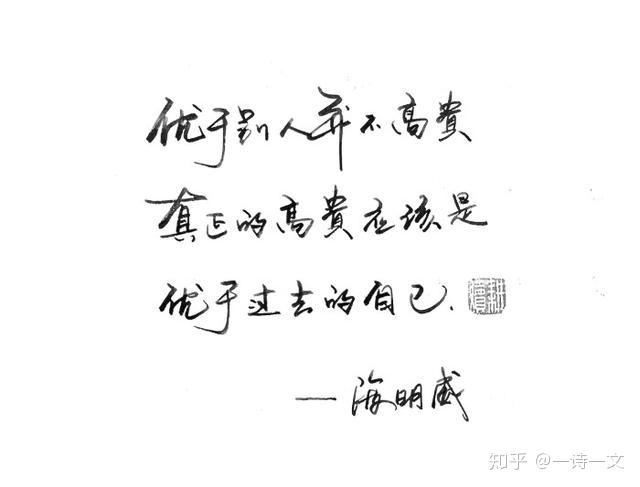 优于别人并不高貴
真正的高貴应该是
优于过去的自己.
—海明威
知乎 @一诗一文